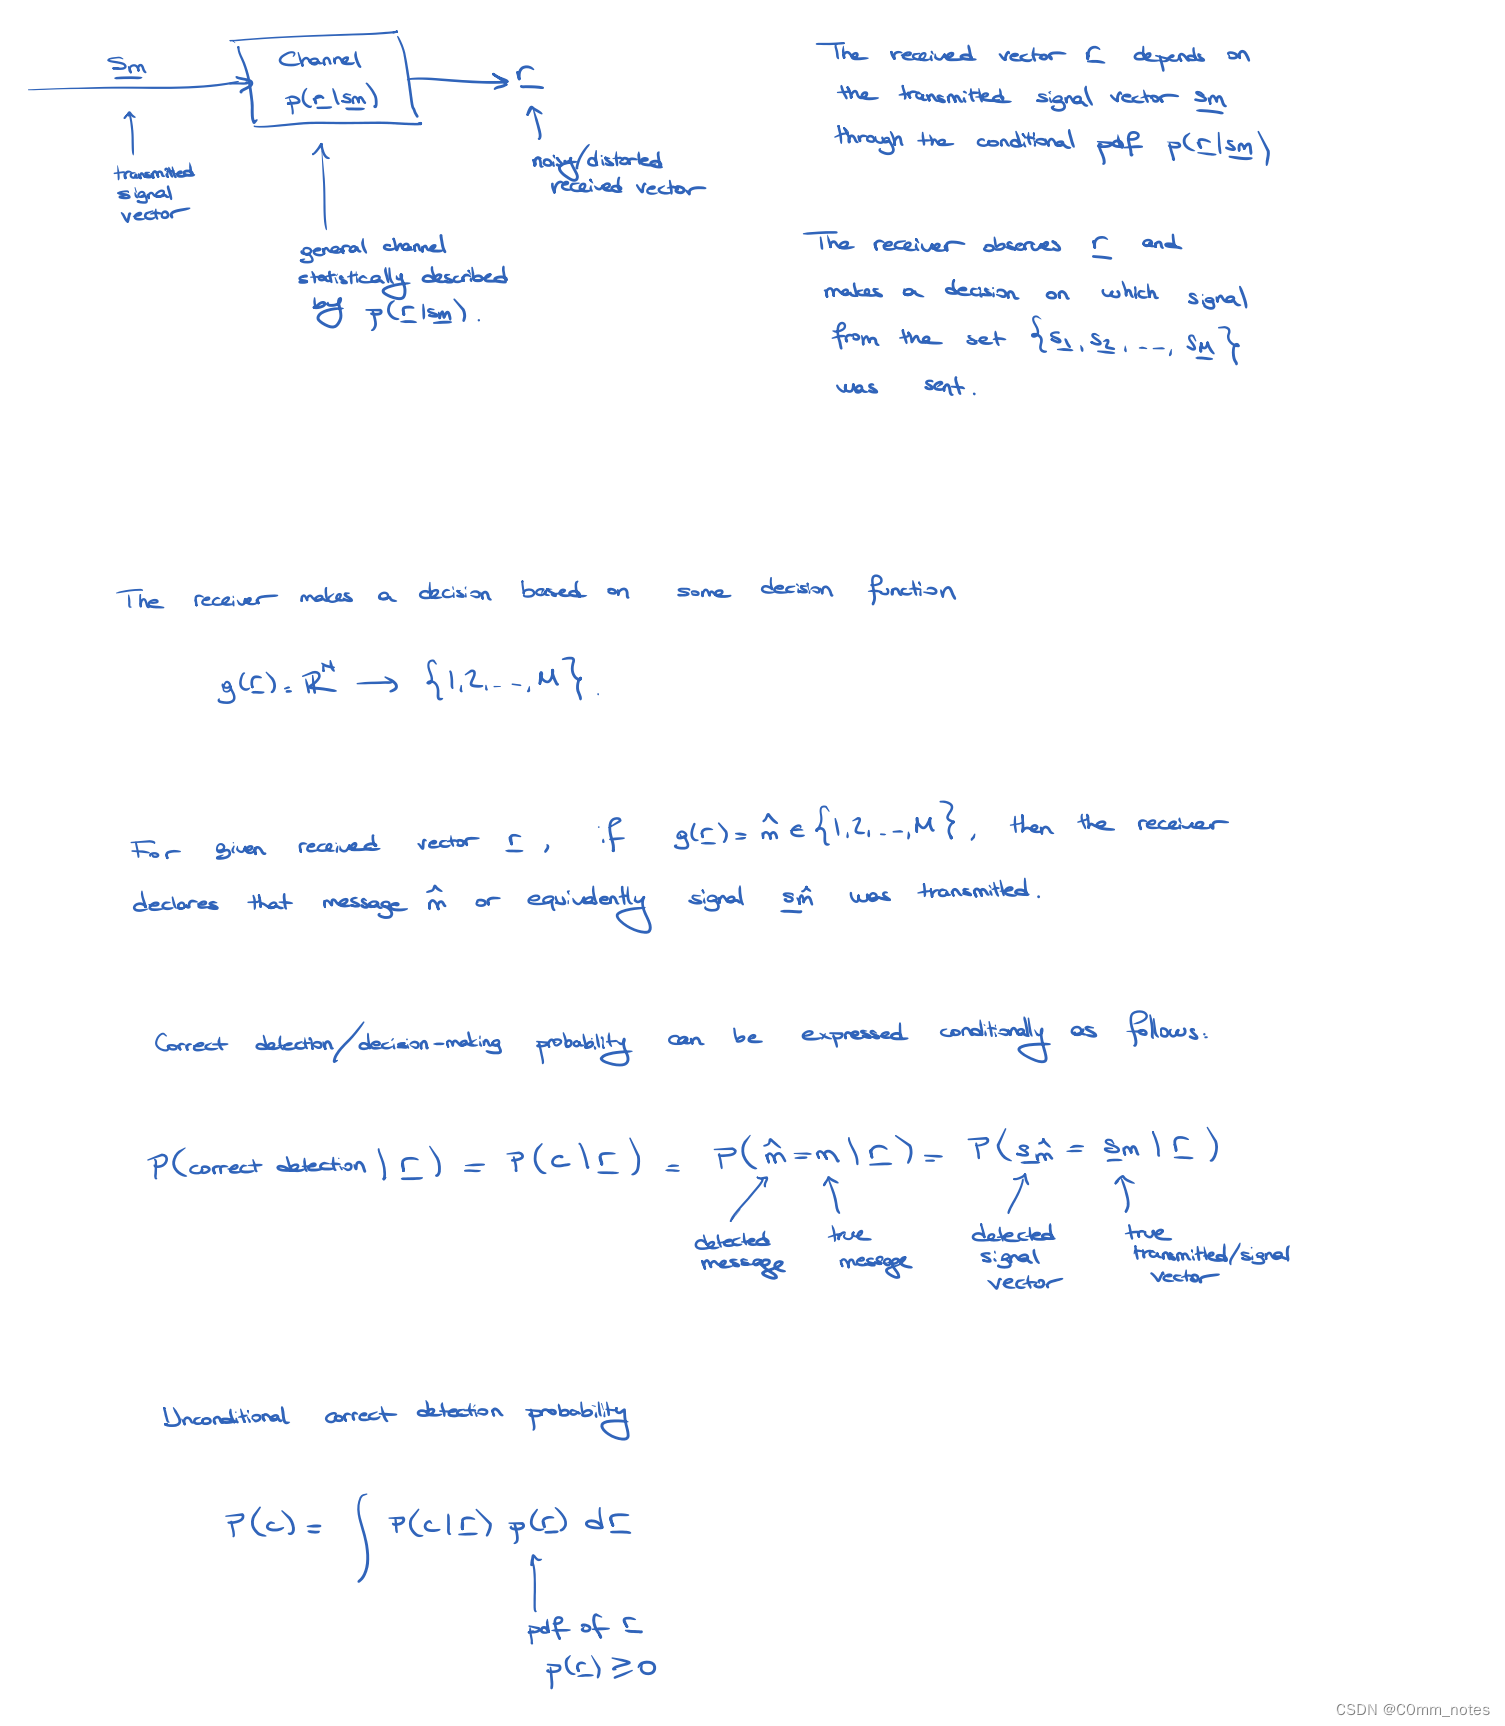 Sm
Channel
p(r|sm)
r
transmitted
signal
vector
noisy/distorted
received vector
general channel
statistically described
by p(r|sm).
The received vector r depends on
the transmitted signal vector sm
through the conditional pdf p(r|sm)
The receiver observes r and
makes a decision on which signal
from the set {s1, s2, ..., sM}
was sent.
The receiver makes a decision based on some decision function
g(r): ℝᴺ → {1,2,...,M}.
For given received vector r, if g(r) = m̂ ∈ {1,2,...,M}, then the receiver
declares that message m̂ or equivalently signal sm̂ was transmitted.
Correct detection/decision-making probability can be expressed conditionally as follows:
P(correct detection | r) = P(c | r) = P(m̂ = m | r) = P(sm̂ = sm | r)
detected
message
true
message
detected
signal
vector
true
transmitted/signal
vector
Unconditional correct detection probability
P(c) = ∫ P(c|r) p(r) dr
pdf of r
p(r) ≥ 0
CSDN @C0mm_notes